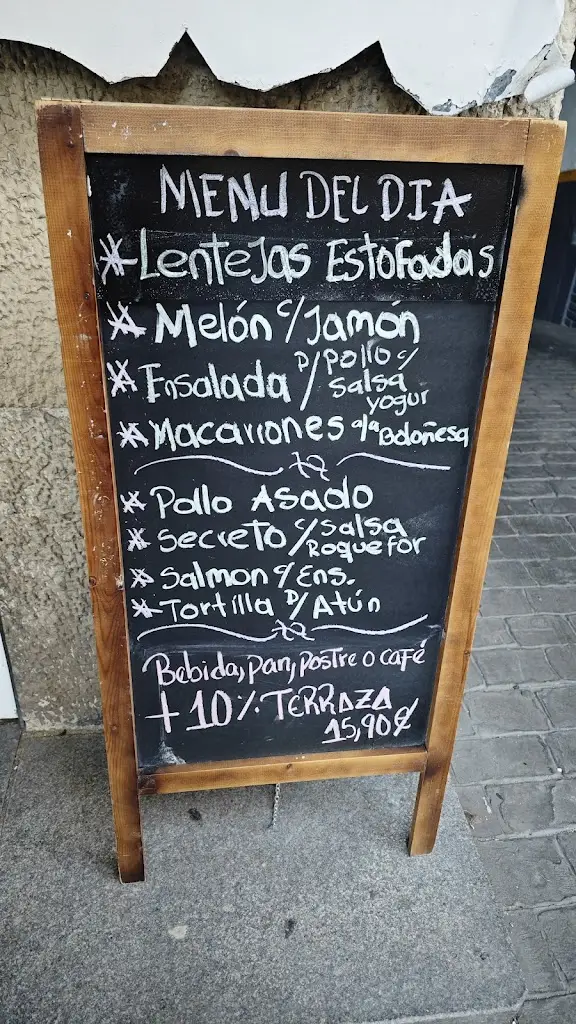 MENU DEL DIA
* Lentejas Estofadas
* Melón c/ Jamón
* Ensalada D/ Pollo c/
Salsa
yogur
* Macarrones a la Boloñesa
* Pollo Asado
* Secreto c/ Salsa
Roquefor
* Salmon c/ Ens.
* Tortilla D/ Atún
Bebida, pan, postre o café
+ 10% TERRAZA
15,90€